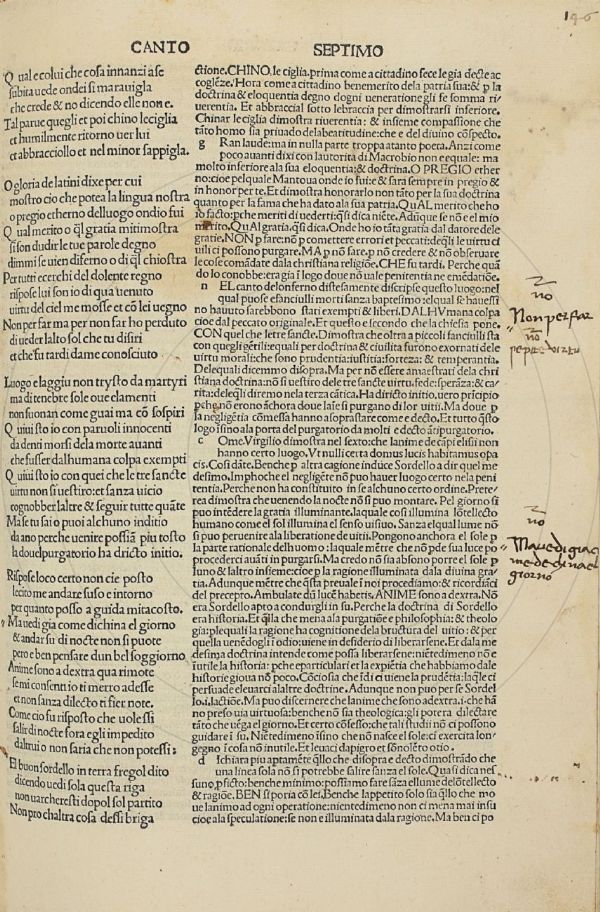 196
CANTO SEPTIMO
Q ual e colui che cosa innanzi a se
subita uede ondei si marauigla
che crede & no dicendo elle non e.
Tal parue quegli et poi chino leciglia
et humilmente ritorno uer lui
et abbracciollo et nel minor sappigla.
O gloria de latini dixe per cui
mostro cio che potea la lingua nostra
o pregio etherno delluogo ondio fui
Qual merito o q̃l gratia mitimostra
si son dudir le tue parole degno
dimmi se uien dinferno o di q̃l chiostra
Per tutti ecerchi del dolente regno
rispose lui son io di qua uenuto
uirtu del ciel me mosse et cõ lei uegno
Non per far ma per non far ho perduto
di ueder lalto sol che tu disiri
et che fu tardi dame conosciuto
Luogo e laggiu non trysto da martyri
ma di tenebre sole oue elamenti
non suonan come guai ma cõ sospiri
Quiui sto io con paruoli innocenti
da denti morsi dela morte auanti
che fusser dalhumana colpa exempti
Quiui sto io con quei che le tre sancte
uirtu non si uestiro: et sanza uicio
cognobber laltre & seguir tutte quãte
Ma se tu sai o puoi alchuno inditio
da ano perche uenire possiã piu tosto
la doue lpurgatorio ha dricto initio.
Rispose loco certo non cie posto
lecito me andare suso e intorno
per quanto posso a guida mitacosto.
Ma uedi gia come dichina el giorno
& andar su di nocte non si puote
pero e ben pensare dun bel soggiorno
Anime sono a dextra qua rimote
se mi consenti io ti merro adesse
et non sanza dilecto ti fier note.
Come cio fu risposto che uolessi
salir di nocte fora egli impedito
daltrui o non saria che non potessi:
El buon sordello in terra fregol dito
dicendo uedi sola questa riga
non uarcheresti dopol sol partito
Non pro chaltra cosa dessi briga
ctione. CHINO. le ciglia. prima come a cittadino fece le gia decte ac
cogleze. Hora come a cittadino benemerito dela patria sua: & p la
doctrina & eloquentia degno dogni ueneratione gli fe somma ri
uerentia. Et abbraccial sotto lebraccia per dimostrarsi inferiore.
Chinar le ciglia dimostra riuerentia: & insieme compassione che
tãto homo sia priuado dela beatitudine: che e del diuino cõspecto.
g Ran laude: ma in nulla parte troppa atanto poeta. Anzi come
poco auanti dixi con lautorita di Macrobio non e equale: ma
molto inferiore ala sua eloquentia: & doctrina. O PREGIO ether
no: cioe pelquale Mantoua onde io fuite & sara sempre in pregio &
in honor per te. Et dimostra honorarlo non tãto per la sua doctrina
quanto per la fama che ha dato ala sua patria. QuAL merito che ho
io facto: p che meriti di uederti: q̃si dica niẽte. Adũque se nõ e el mio
merito. QuAl gratia. q̃si dica. Onde ho io tãta gratia dal datore dele
gratie. NON p fare: nõ p comettere errori et peccati: deq̃li le uirtu ci
uili ci possono purgare. MA p nõ fare. p nõ credere & nõ obseruare
le cose comãdate dala christiana religiõe. CHE fu tardi. Perche quã
do lo conobbe: era gia ĩ logo doue nõ uale penitentia ne emẽdatiõe.
n EL canto delonferno distesamente discripse questo luogo: nel
qual puose efanciulli morti sanza baptesimo: elqual se hauessi
no hauuto sarebbono stati exempti & liberi. DALHVmana colpa
cioe dal peccato originale. Et questo e secondo che la chiesia pone.
CON quel che le tre sancte. Dimostra che oltra a piccoli fanciulli sta
con quegli gẽtili: equali per doctrina & ciuilita furono exornati dele
uirtu morali: che sono prudentia: iustitia: forteza: & temperantia.
Delequali dicemmo disopra. Ma per nõ essere amaestrati dela chri
stiana doctrina: nõ si uestiro dele tre sancte uirtu. fede: sperãza: & ca
rita: deleq̃li diremo nela terza cãtica. Ha dricto initio. uero pricipio
p che nõ erono ãchora doue laĩe si purgano di lor uitii. Ma doue p
la negligẽtia cõmessa hanno a soprastare come e decto. Et tutto q̃sto
logo ĩsino ala porta del purgatorio da molti e decto ãtipurgatorio.
c Ome. Virgilio dimostra nel sexto: che lanime de cãpi elisii non
hanno certo luogo. Vt nulli certa domus lucis habitamus opa
cis. Cosi dãte. Benche p altra cagione induce Sordello a dir quel me
desimo. Impho che el negligẽte nõ puo hauer luogo certo nela peni
tẽtia. Perche non ha constituto in se alchuno certo ordine. Prete
rea dimostra che uenendo la nocte nõ si puo montare. Pel giorno si
puo intẽdere la gratia illuminante. laquale cosi illumina lõtellecto
humano come el sol illumina el senso uisiuo. Sanza elqual lume nõ
si puo peruenire ala liberatione de uitii. Pongono anchora el sole p
la parte rationale delhuomo: laquale mẽtre che nõ pde sua luce po
procederci auãti in purgarsi. Ma credo nõ sia absono porre el sole p
luno & laltro insieme: cioe p la ragione illuminata dala diuina gra
tia. Adunque mẽtre che q̃sta pretuale ĩ noi procediamo: & ricordiãci
del precepto. Ambulate dũ lucẽ haberis. ANIME sono a dextra. Nõ
era Sordello apto a condurgli in su. Perche la doctrina di Sordello
era historia. Et q̃lla che mena ala purgatiõe e philosophia: & theolo
gia: p lequali la ragione ha cognitione dela bructura del uitio: & per
quella uenẽdogli ĩ odio: uiene in desiderio di liberarsene. Et dala me
desima doctrina intende come possa liberarsene: niẽtedimeno nõ e
ĩutile la historia: pche e particulari et la expiẽtia che habbiamo dale
historie gioua nõ poco. Cõciosia che ĩdi ci uiene la prudẽtia: laq̃le ci
persuade eleuarci alaltre doctrine. Adunque non puo per se Sordel
lo. i. lactiõe. Ma puo discernere che lanime che sono adextra. i. che hã
no preso uia uirtuosa: benche nõ sia theologica: gli potera dilectare
tãto che uẽga el giorno. Et certo cõfesso: che tal studii nõ ci possono
guidare ĩ su. Niẽtedimeno ĩsino che nõ nasce el sole: ci exercita lon
gegno ĩ cosa nõ inutile. Et leuaci da pigro et sõnolẽto otio.
d Ichiara piu aptamẽte q̃llo che disopra e decto dimostrãdo che
una linea sola nõ si potrebbe salire sanza el sole. Quasi dica nes
suno, p facto: benche minimo: possiamo fare sãza ellume delõtellecto
& ragiõe. BEN si poria cõ lei. Benche lappetito solo sia q̃llo che mo
ue lanimo ad ogni operatione: niẽtedimeno non ci mena mai insu
cioe ala speculatione: se non e illuminata dala ragione. Ma ben ci po
no
Non per far
no
no
Ma uedi gia c
me dechina el
giorno